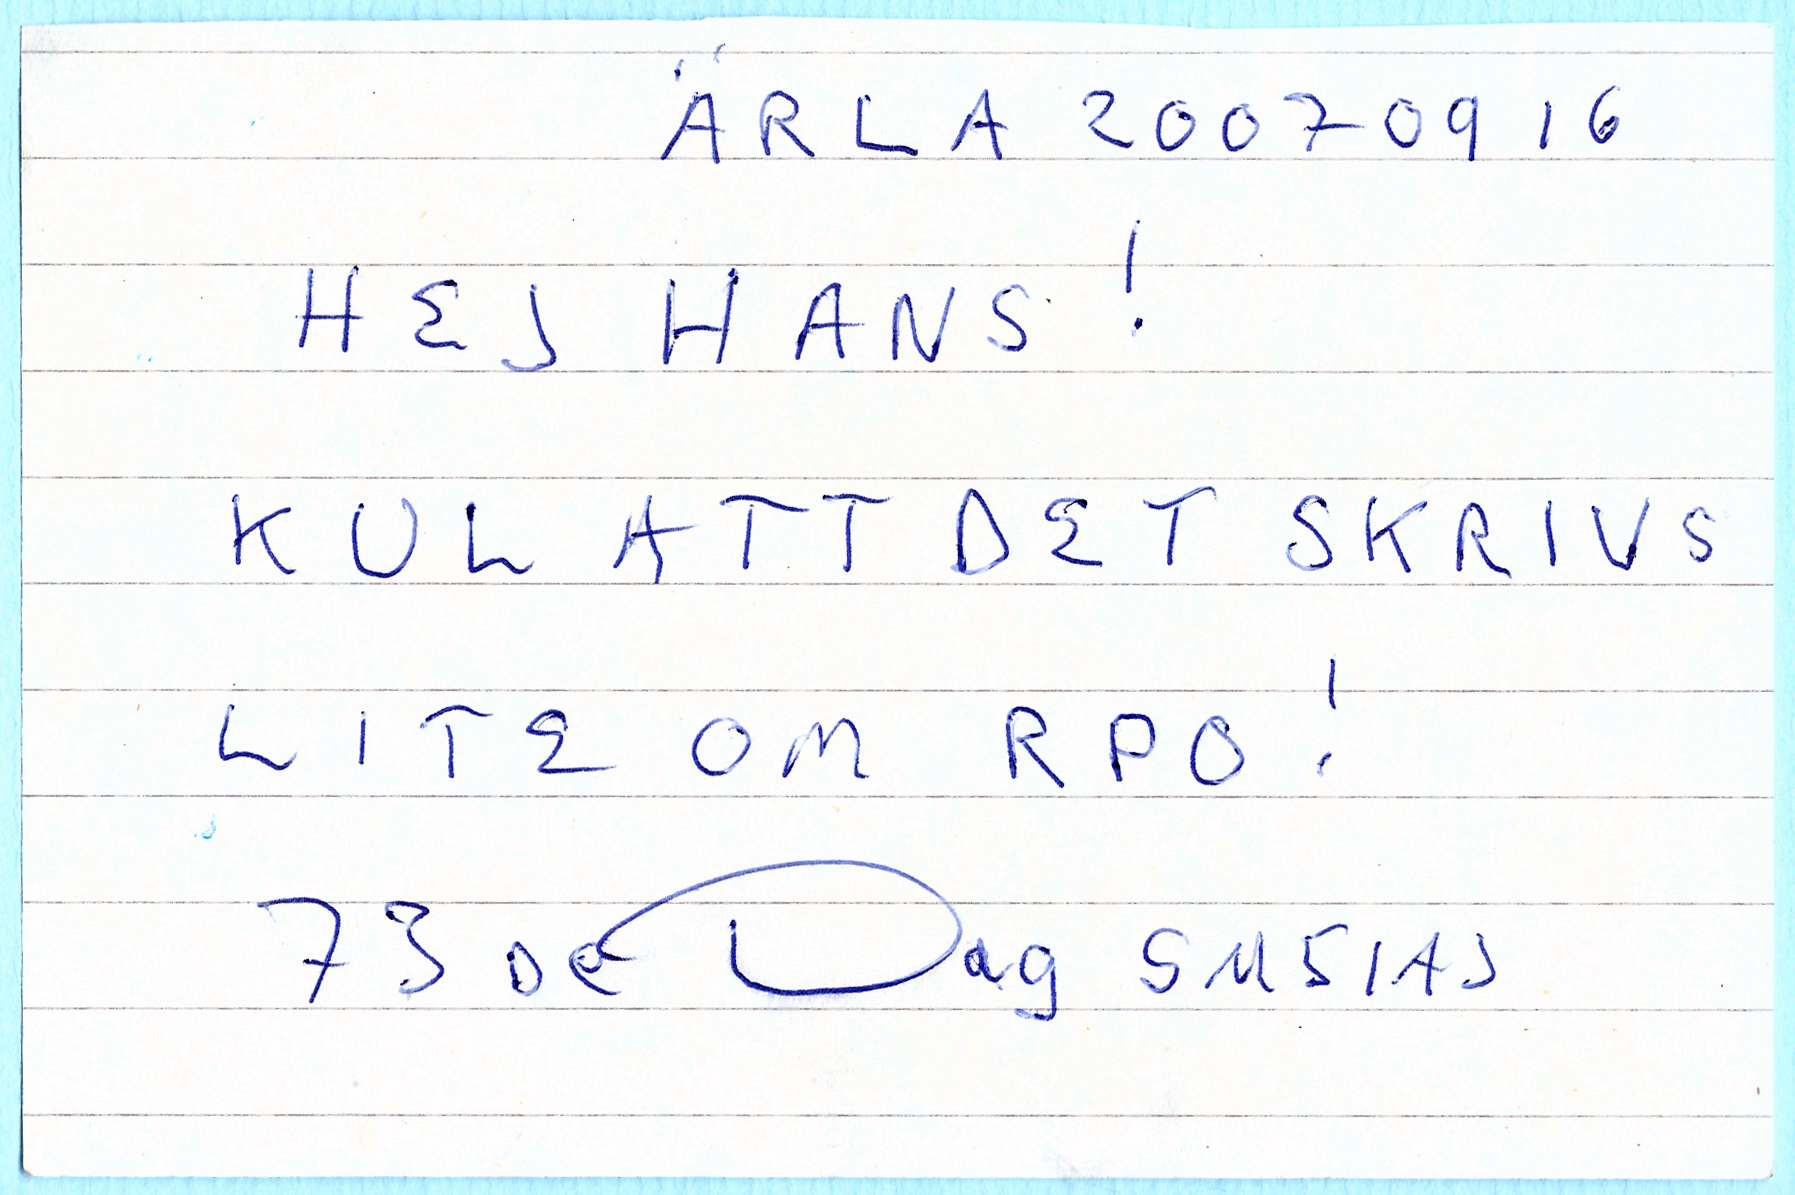 ÄRLA 20070916
HEJ HANS!
KUL ATT DET SKRIVS
LITE OM RPO!
73 DE Dag SM5IAJ